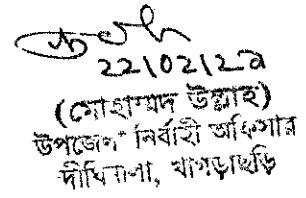 22/02/22
(মোহাম্মদ উল্লাহ)
উপজেলা নির্বাহী অফিসার
দীঘিনালা, খাগড়াছড়ি